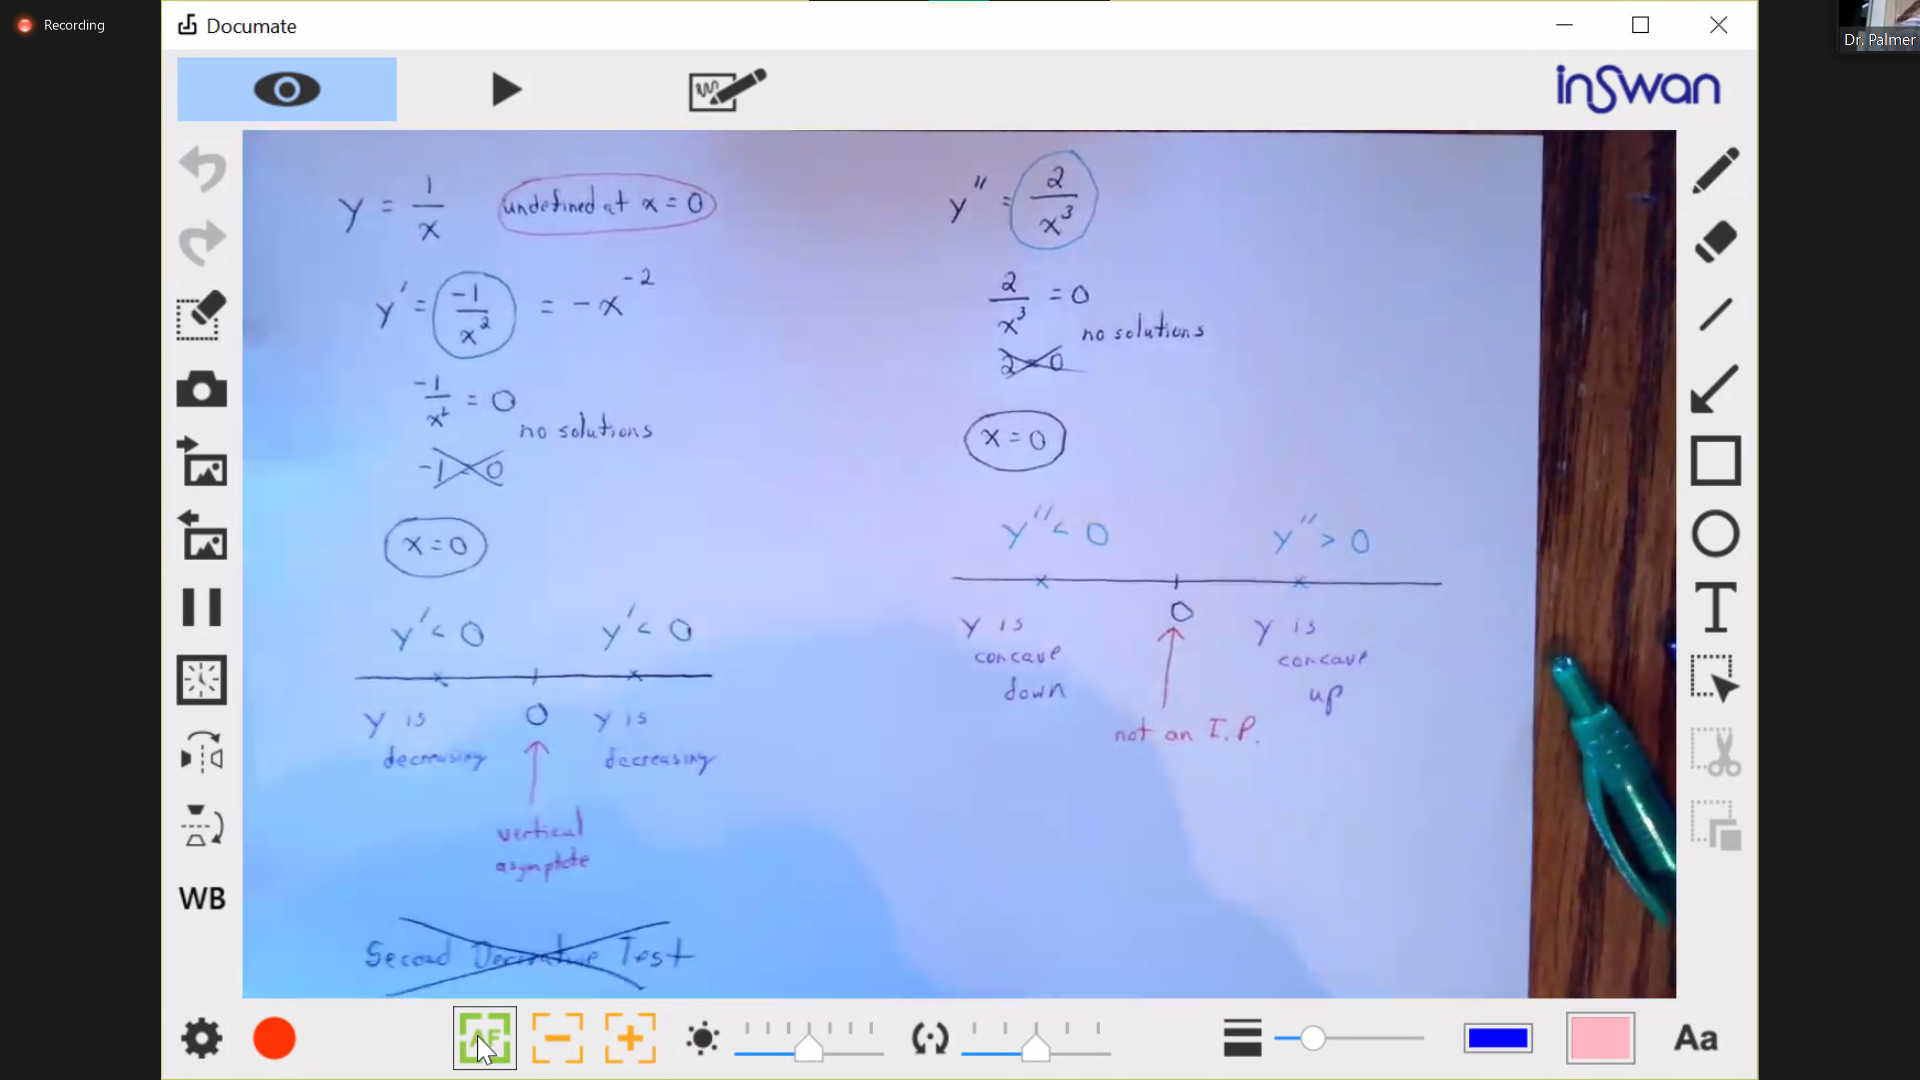 Recording
Documate
Dr. Palmer
inSwan
y = 1/x undefined at x = 0
y' = -1/x² = -x⁻²
-1/x² = 0
no solutions
-1 = 0
x = 0
y' < 0 y' < 0
0
y is decreasing
y is decreasing
vertical
asymptote
Second Derivative Test
y'' = 2/x³
2/x³ = 0
no solutions
2 = 0
x = 0
y'' < 0 y'' > 0
0
y is
concave
down
y is
concave
up
not an I.P.
WB
T
AF
Aa